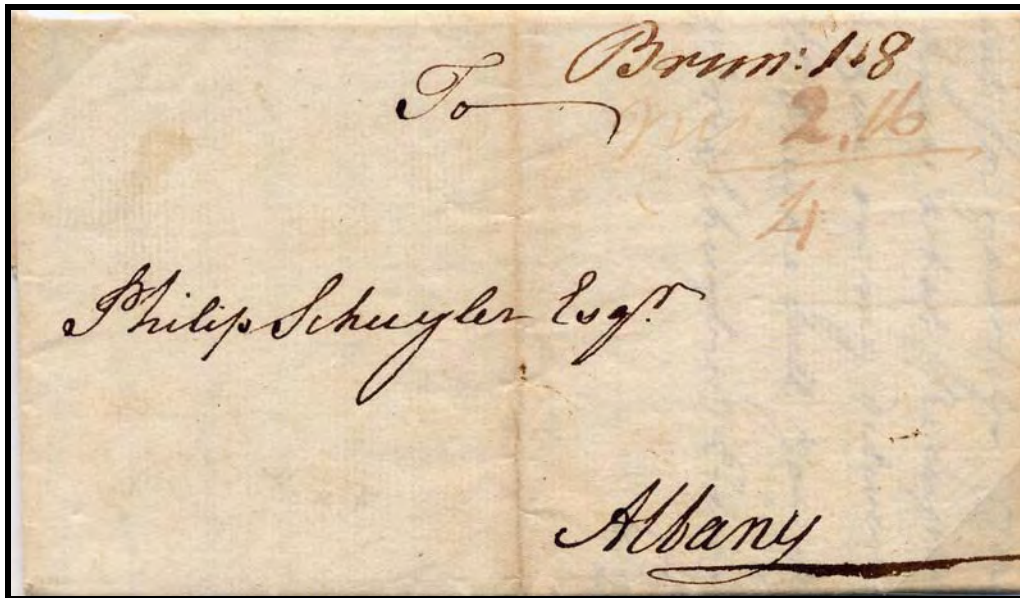 Brun: 1"8
To
2.16
4
Philip Schuyler Esqr.
Albany